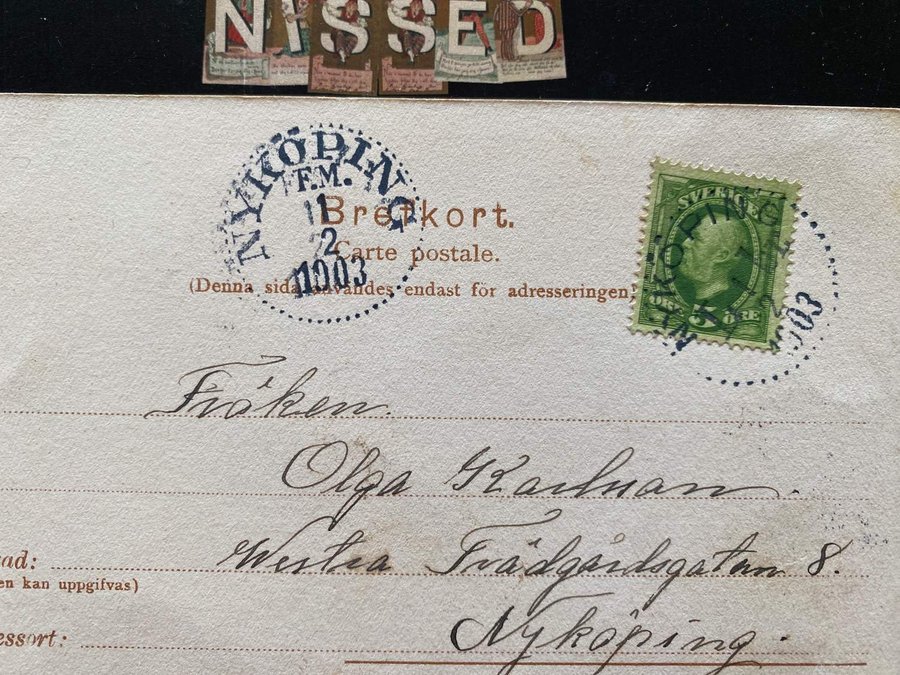 NISSED
NYKÖPING
F.M.
11
2
1903
Brefkort.
Carte postale.
(Denna sida användes endast för adresseringen
SVERIGE
NYKÖPING
ÖRE 5 ÖRE
1903
Fröken
Olga Karlman.
Westra Trädgårdsgatan 8.
ad:
en kan uppgifvas)
essort:
Nyköping.